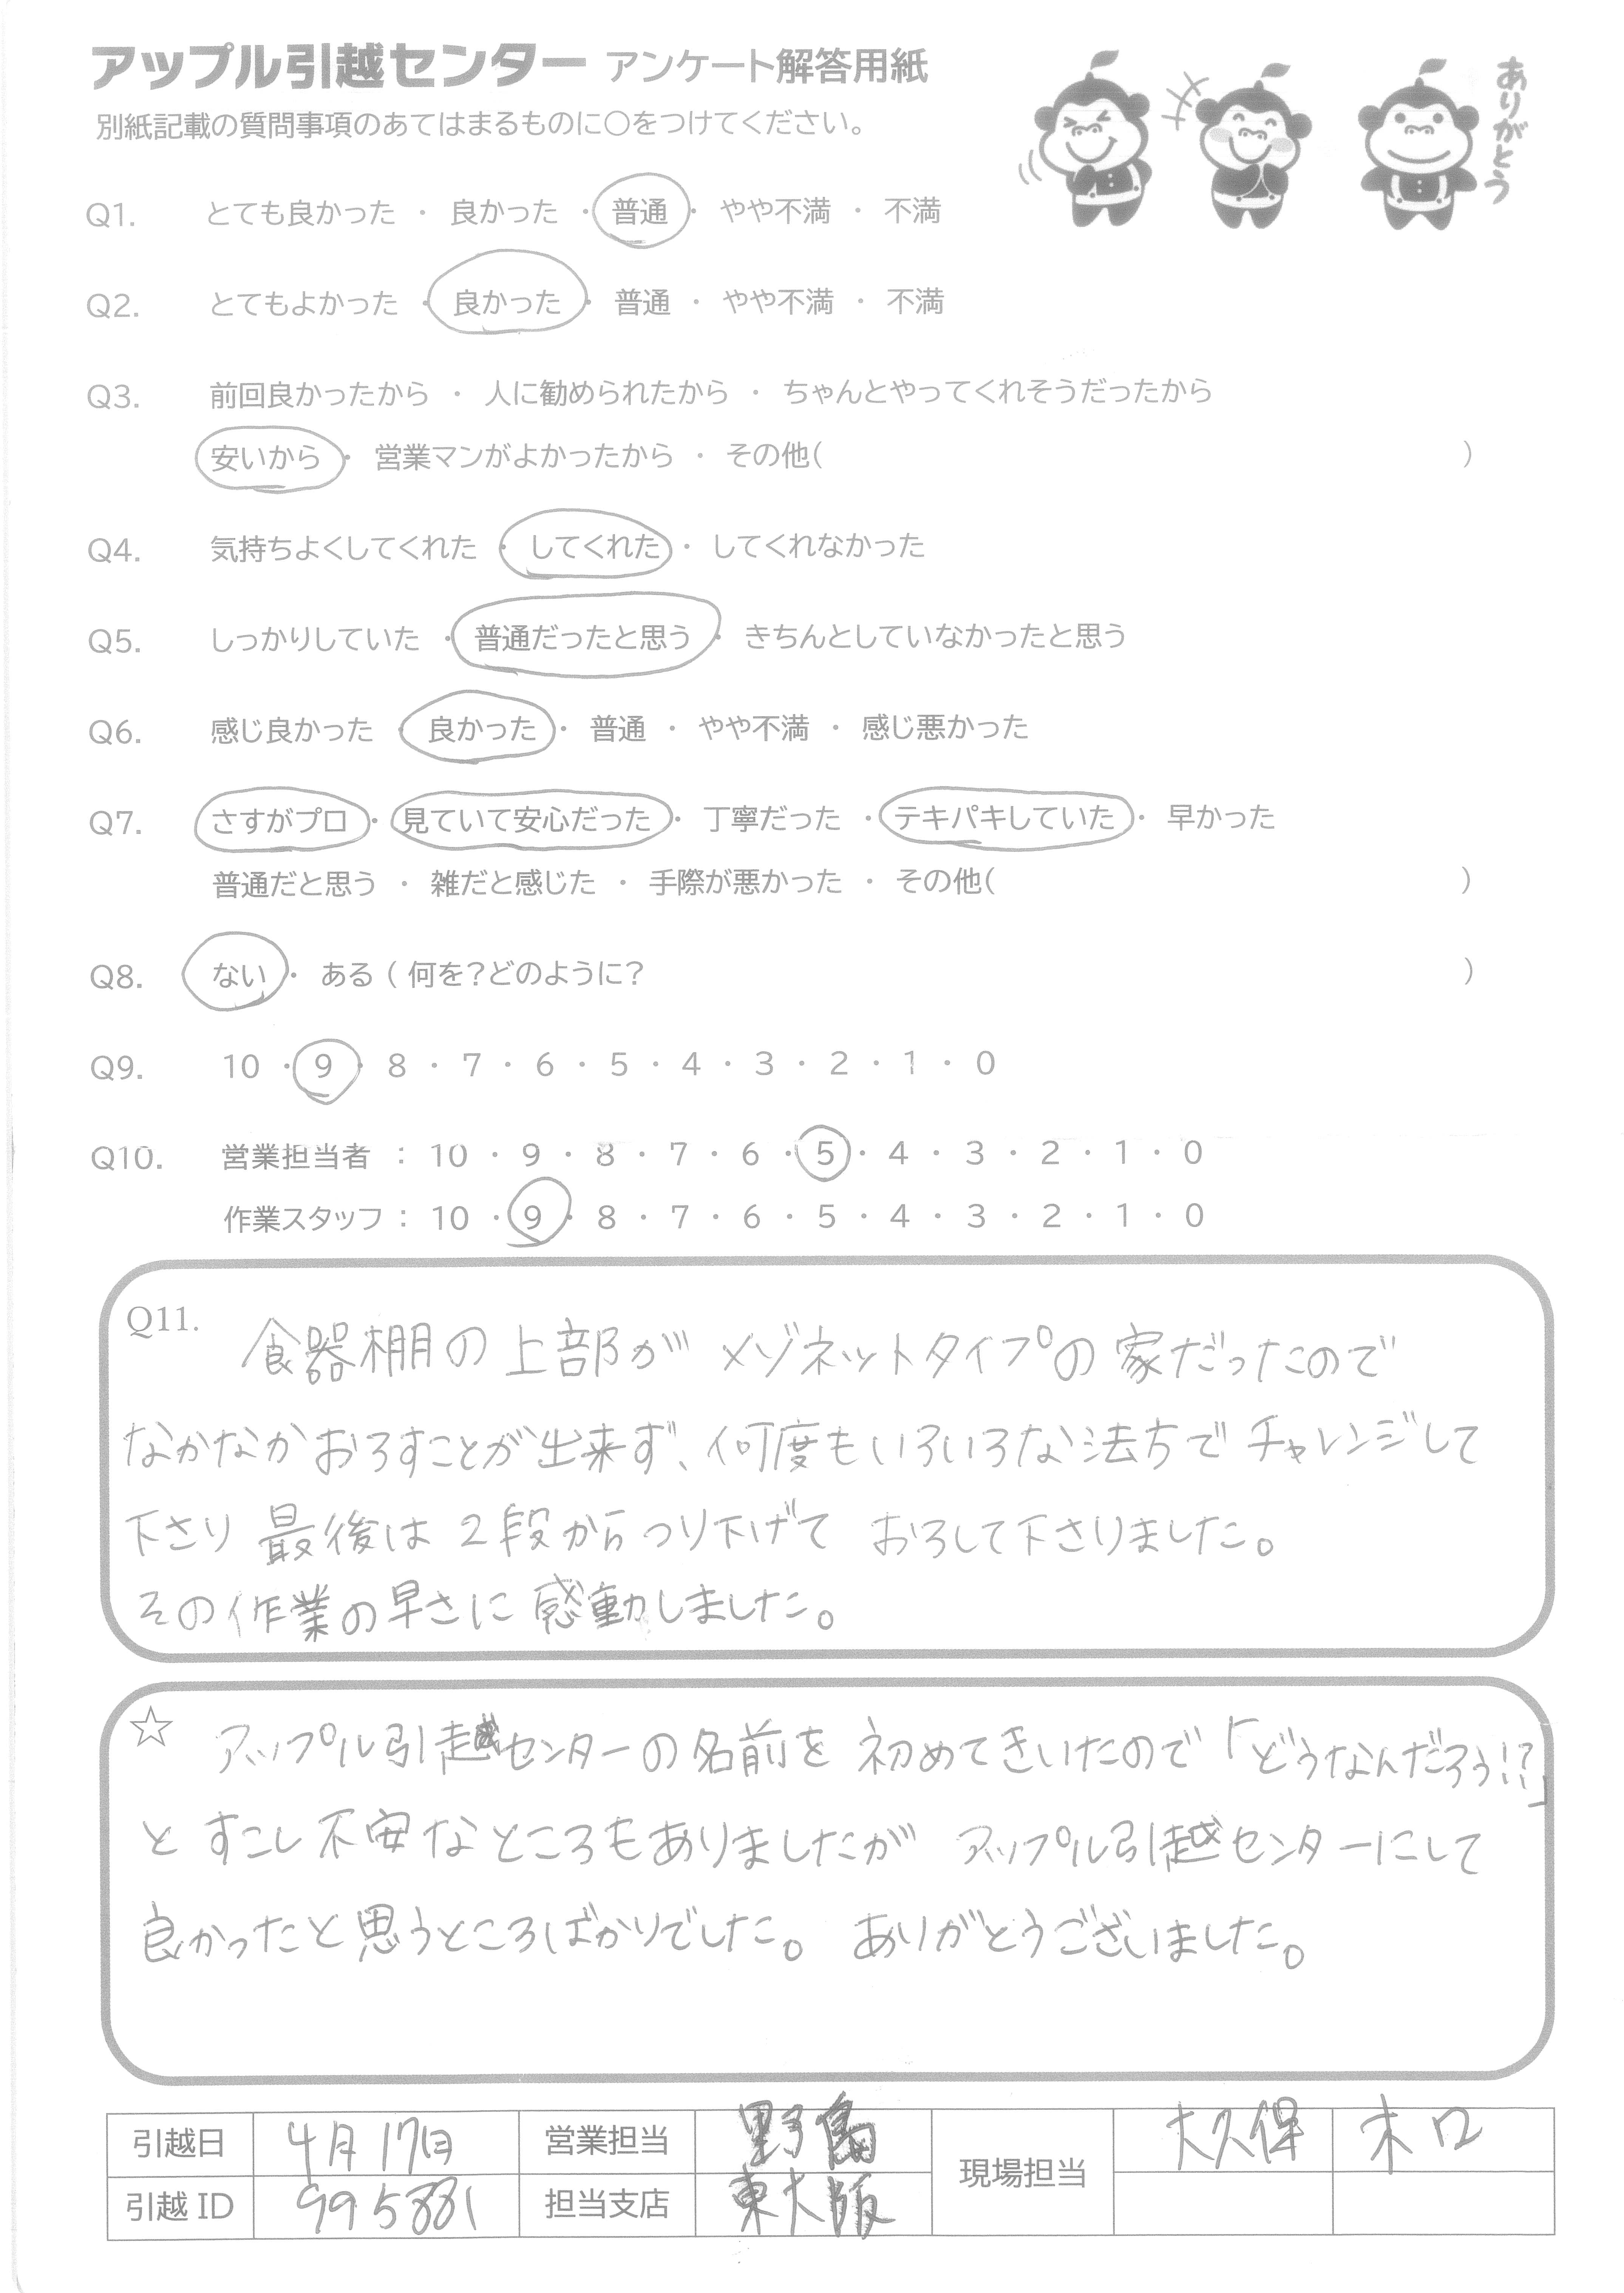 アップル引越センター アンケート解答用紙
ありがとう
別紙記載の質問事項のあてはまるものに○をつけてください。
Q1. とても良かった ・ 良かった ・ 普通 ・ やや不満 ・ 不満
Q2. とてもよかった ・ 良かった ・ 普通 ・ やや不満 ・ 不満
Q3. 前回良かったから ・ 人に勧められたから ・ ちゃんとやってくれそうだったから
安いから ・ 営業マンがよかったから ・ その他( )
Q4. 気持ちよくしてくれた ・ してくれた ・ してくれなかった
Q5. しっかりしていた ・ 普通だったと思う ・ きちんとしていなかったと思う
Q6. 感じ良かった ・ 良かった ・ 普通 ・ やや不満 ・ 感じ悪かった
Q7. さすがプロ ・ 見ていて安心だった ・ 丁寧だった ・ テキパキしていた ・ 早かった
普通だと思う ・ 雑だと感じた ・ 手際が悪かった ・ その他( )
Q8. ない ・ ある ( 何を?どのように? )
Q9. 10 ・ 9 ・ 8 ・ 7 ・ 6 ・ 5 ・ 4 ・ 3 ・ 2 ・ 1 ・ 0
Q10. 営業担当者 : 10 ・ 9 ・ 8 ・ 7 ・ 6 ・ 5 ・ 4 ・ 3 ・ 2 ・ 1 ・ 0
作業スタッフ : 10 ・ 9 ・ 8 ・ 7 ・ 6 ・ 5 ・ 4 ・ 3 ・ 2 ・ 1 ・ 0
Q11. 食器棚の上部がメゾネットタイプの家だったので
なかなかおろすことが出来ず、何度もいろいろな法方でチャレンジして
下さり 最後は2段からつり下げて おろして下さりました。
その作業の早さに感動しました。
☆ アップル引越センターの名前を初めてきいたので「どうなんだろう!?」
とすこし不安なところもありましたが アップル引越センターにして
良かったと思うところばかりでした。ありがとうございました。
引越日 4月17日 営業担当 野島 現場担当 大久保 木口
引越ID 995881 担当支店 東大阪